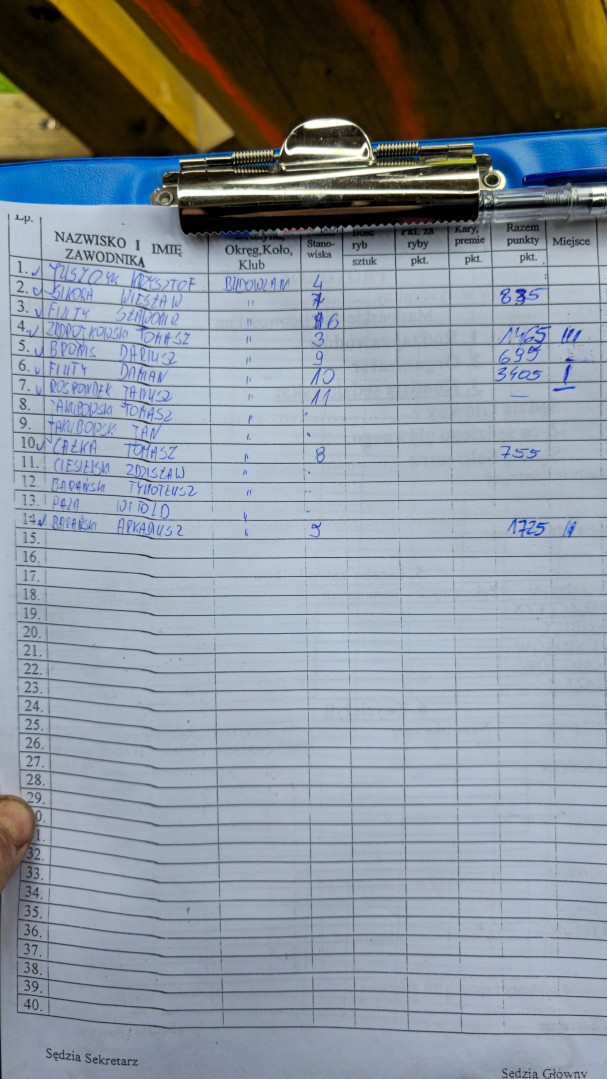 Lp. NAZWISKO I IMIĘ ZAWODNIKA Okręg, Koło, Klub Stano-wiska ryb sztuk Pkt. za ryby pkt. Kary, premie pkt. Razem punkty pkt. Miejsce
1. KRZYSZTOF BUDOWLANI 4
2. SIKORA WIESŁAW " 7 835
3. FIUTY SŁAWOMIR " 6
4. TOMASZ " 3 1465 III
5. BROMS DARIUSZ " 9 695 -
6. FIUTY DAMIAN " 10 3405 I
7. ROSPONDEK JANUSZ " 11 —
8. JAKUBOWSKI TOMASZ "
9. JAN "
10. CAŁKA TOMASZ " 8 755
11. CIESIELSKI ZDZISŁAW "
12. BARAŃSKI TYMOTEUSZ "
13. WITOLD "
14. BARAŃSKI ARKADIUSZ " 1725 II
15.
16.
17.
18.
19.
20.
21.
22.
23.
24.
25.
26.
27.
28.
29.
32.
33.
34.
35.
36.
37.
38.
39.
40.
Sędzia Sekretarz
Sędzia Główny